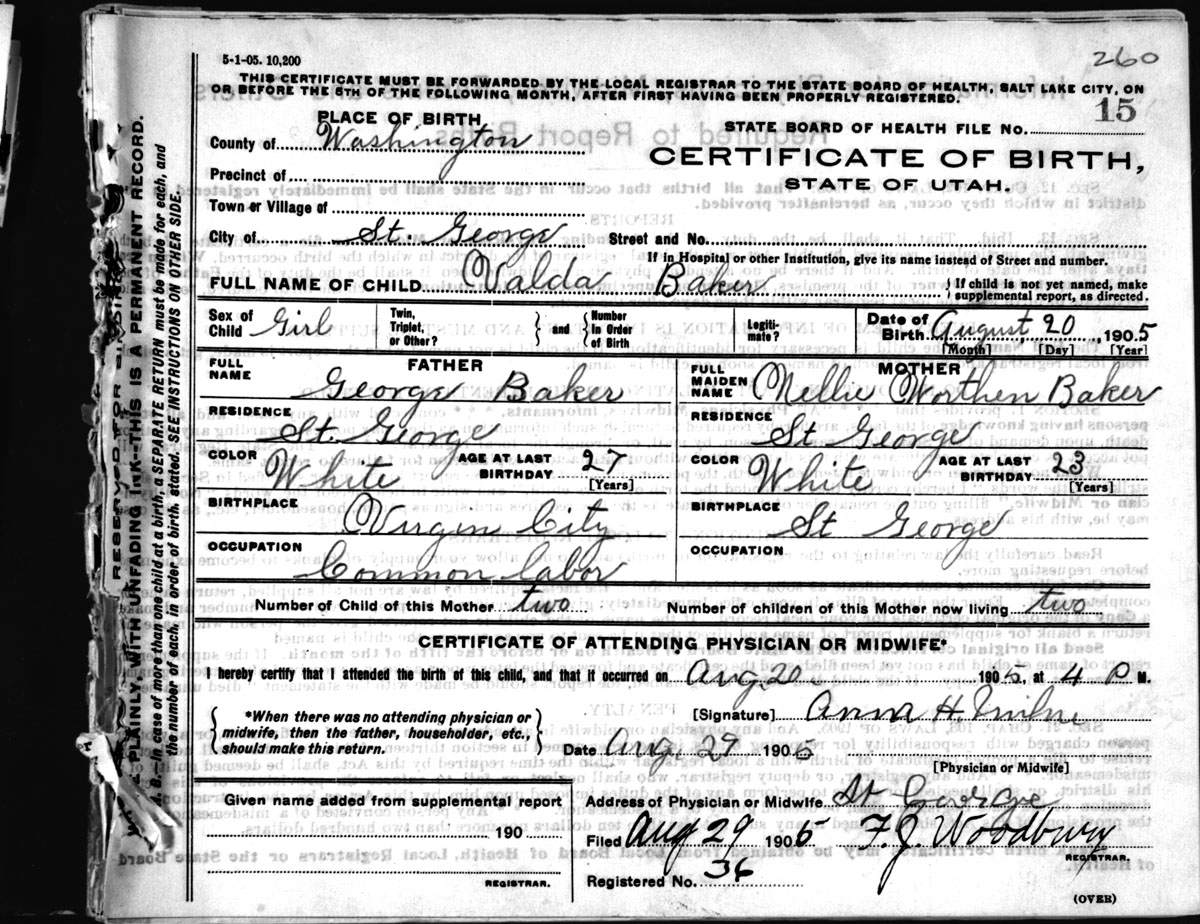 260
5-1-05. 10,200
THIS CERTIFICATE MUST BE FORWARDED BY THE LOCAL REGISTRAR TO THE STATE BOARD OF HEALTH, SALT LAKE CITY, ON
OR BEFORE THE 5TH OF THE FOLLOWING MONTH, AFTER FIRST HAVING BEEN PROPERLY REGISTERED.
PLACE OF BIRTH,
STATE BOARD OF HEALTH FILE No. 15
County of Washington
CERTIFICATE OF BIRTH,
STATE OF UTAH.
Precinct of
Town or Village of
City of St. George Street and No.
If in Hospital or other Institution, give its name instead of Street and number.
FULL NAME OF CHILD Valda Baker } If child is not yet named, make supplemental report, as directed.
Sex of Child Girl Twin, Triplet, or Other? } and { Number in Order of Birth Legitimate? Date of Birth August 20, 1905
[Month] [Day] [Year]
FATHER MOTHER
FULL NAME George Baker FULL MAIDEN NAME Nellie Worthen Baker
RESIDENCE St. George RESIDENCE St George
COLOR White AGE AT LAST BIRTHDAY 27 [Years] COLOR White AGE AT LAST BIRTHDAY 23 [Years]
BIRTHPLACE Virgin City BIRTHPLACE St George
OCCUPATION Common labor OCCUPATION
Number of Child of this Mother two Number of children of this Mother now living two
CERTIFICATE OF ATTENDING PHYSICIAN OR MIDWIFE*
I hereby certify that I attended the birth of this child, and that it occurred on Aug 20 1905, at 4 P M.
{ *When there was no attending physician or midwife, then the father, householder, etc., should make this return. }
[Signature] Anna H. Milne
Date Aug. 29 1905
[Physician or Midwife]
Given name added from supplemental report
190
REGISTRAR.
Address of Physician or Midwife St George
Filed Aug 29 1905 F. J. Woodbury
REGISTRAR.
Registered No. 36
(OVER)
RESERVED FOR BINDING
PLAINLY WITH UNFADING INK--THIS IS A PERMANENT RECORD.
N. B.--In case of more than one child at a birth, a SEPARATE RETURN must be made for each, and
the number of each, in order of birth, stated. SEE INSTRUCTIONS ON OTHER SIDE.